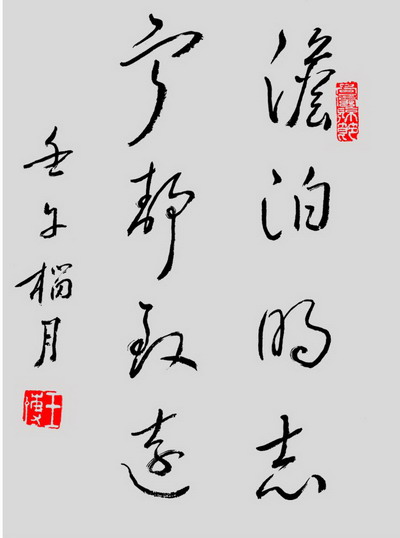 澹泊明志
宁静致遠
壬午榴月